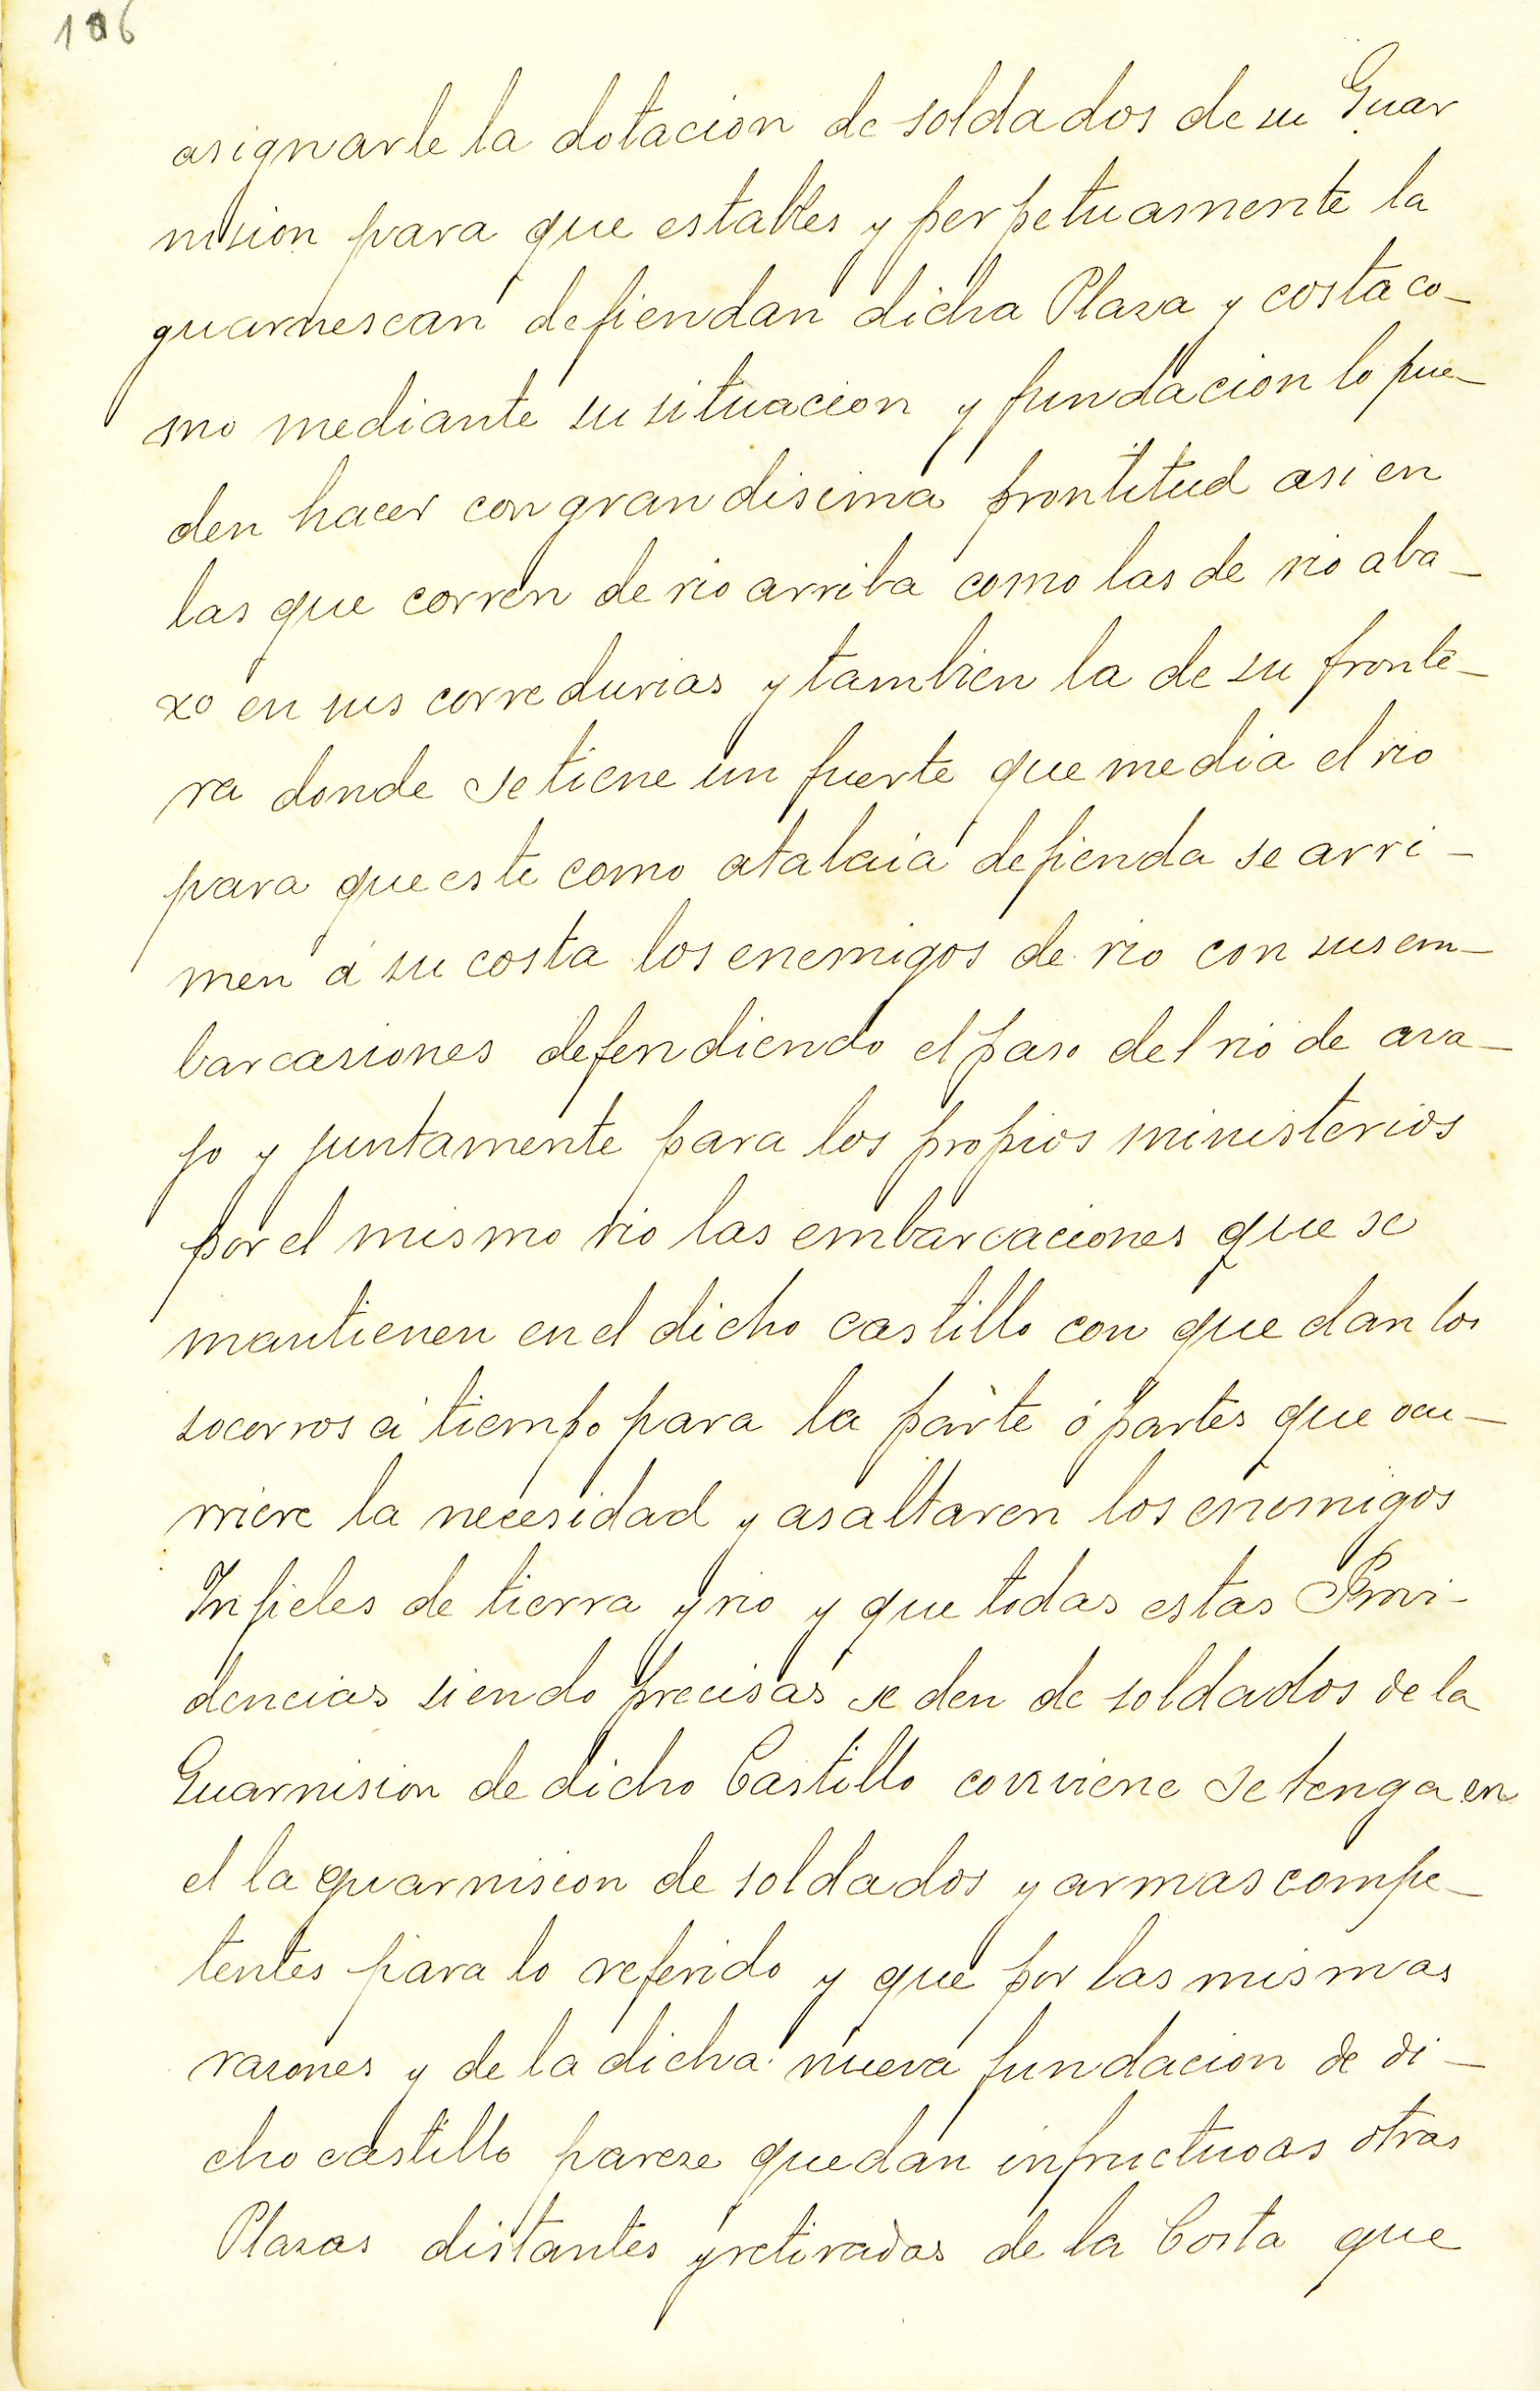 106
asignarle la dotacion de soldados de su Guar
nision para que estables y perpetuamente la
guarnescan defiendan dicha Plaza y costa co-
mo mediante su situacion y fundacion lo pue-
den hacer con grandisima prontitud asi en
las que corren de rio arriba como las de rio aba-
xo en sus corredurias y tambien la de su fronte-
ra donde se tiene un fuerte que media el rio
para que este como atalaia defienda se arri-
men á su costa los enemigos de rio con sus em-
barcasiones defendiendo el paso del rio de ava-
jo y juntamente para los propios ministerios
por el mismo rio las embarcaciones que se
mantienen en el dicho castillo con que dan los
socorros á tiempo para la parte ó partes que ocu-
rriere la necesidad y asaltaren los enemigos
Infieles de tierra y rio y que todas estas Provi-
dencias siendo precisas se den de soldados de la
Guarnision de dicho Castillo conviene se tenga en
el la guarnision de soldados y armas compe-
tentes para lo referido y que por las mismas
rasones y de la dicha nueva fundacion de di-
cho castillo parese quedan infructuoas otras
Plazas distantes y retiradas de la Costa que